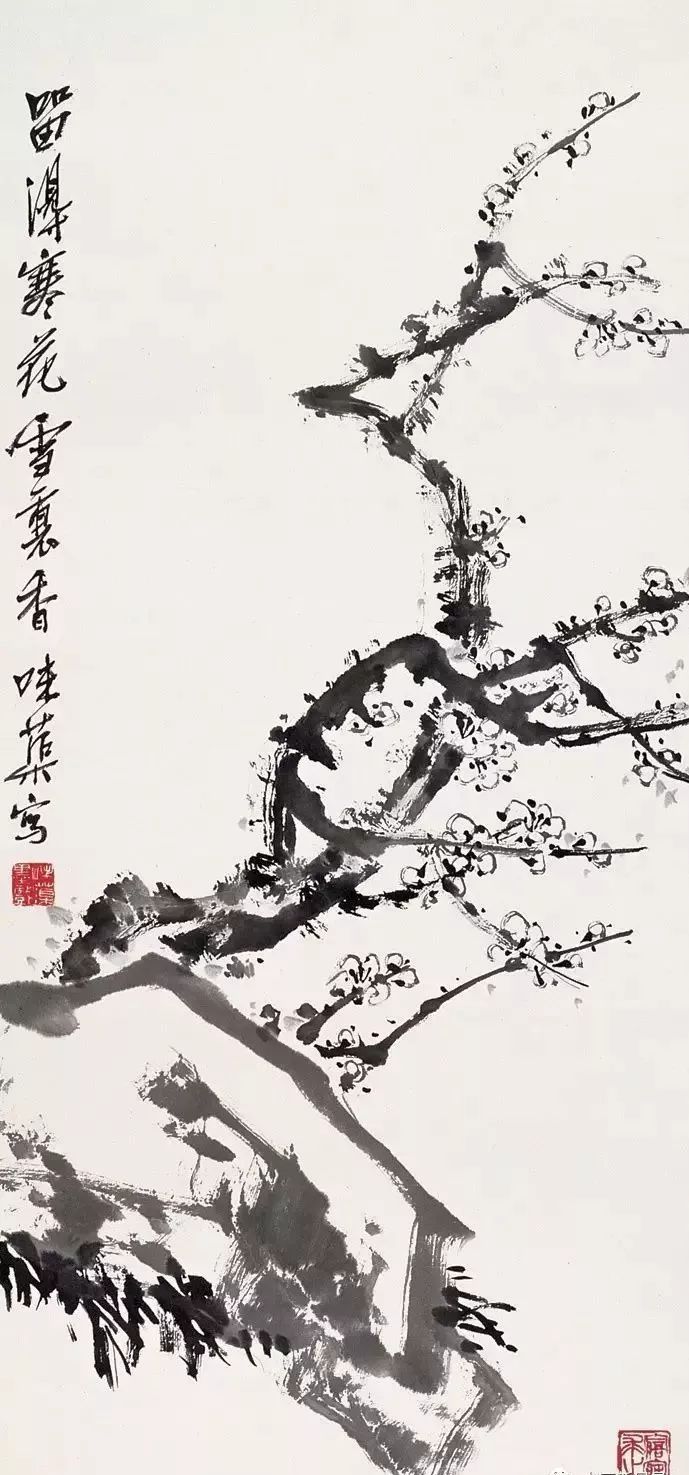 留得寒花雪裏香味蕖寫